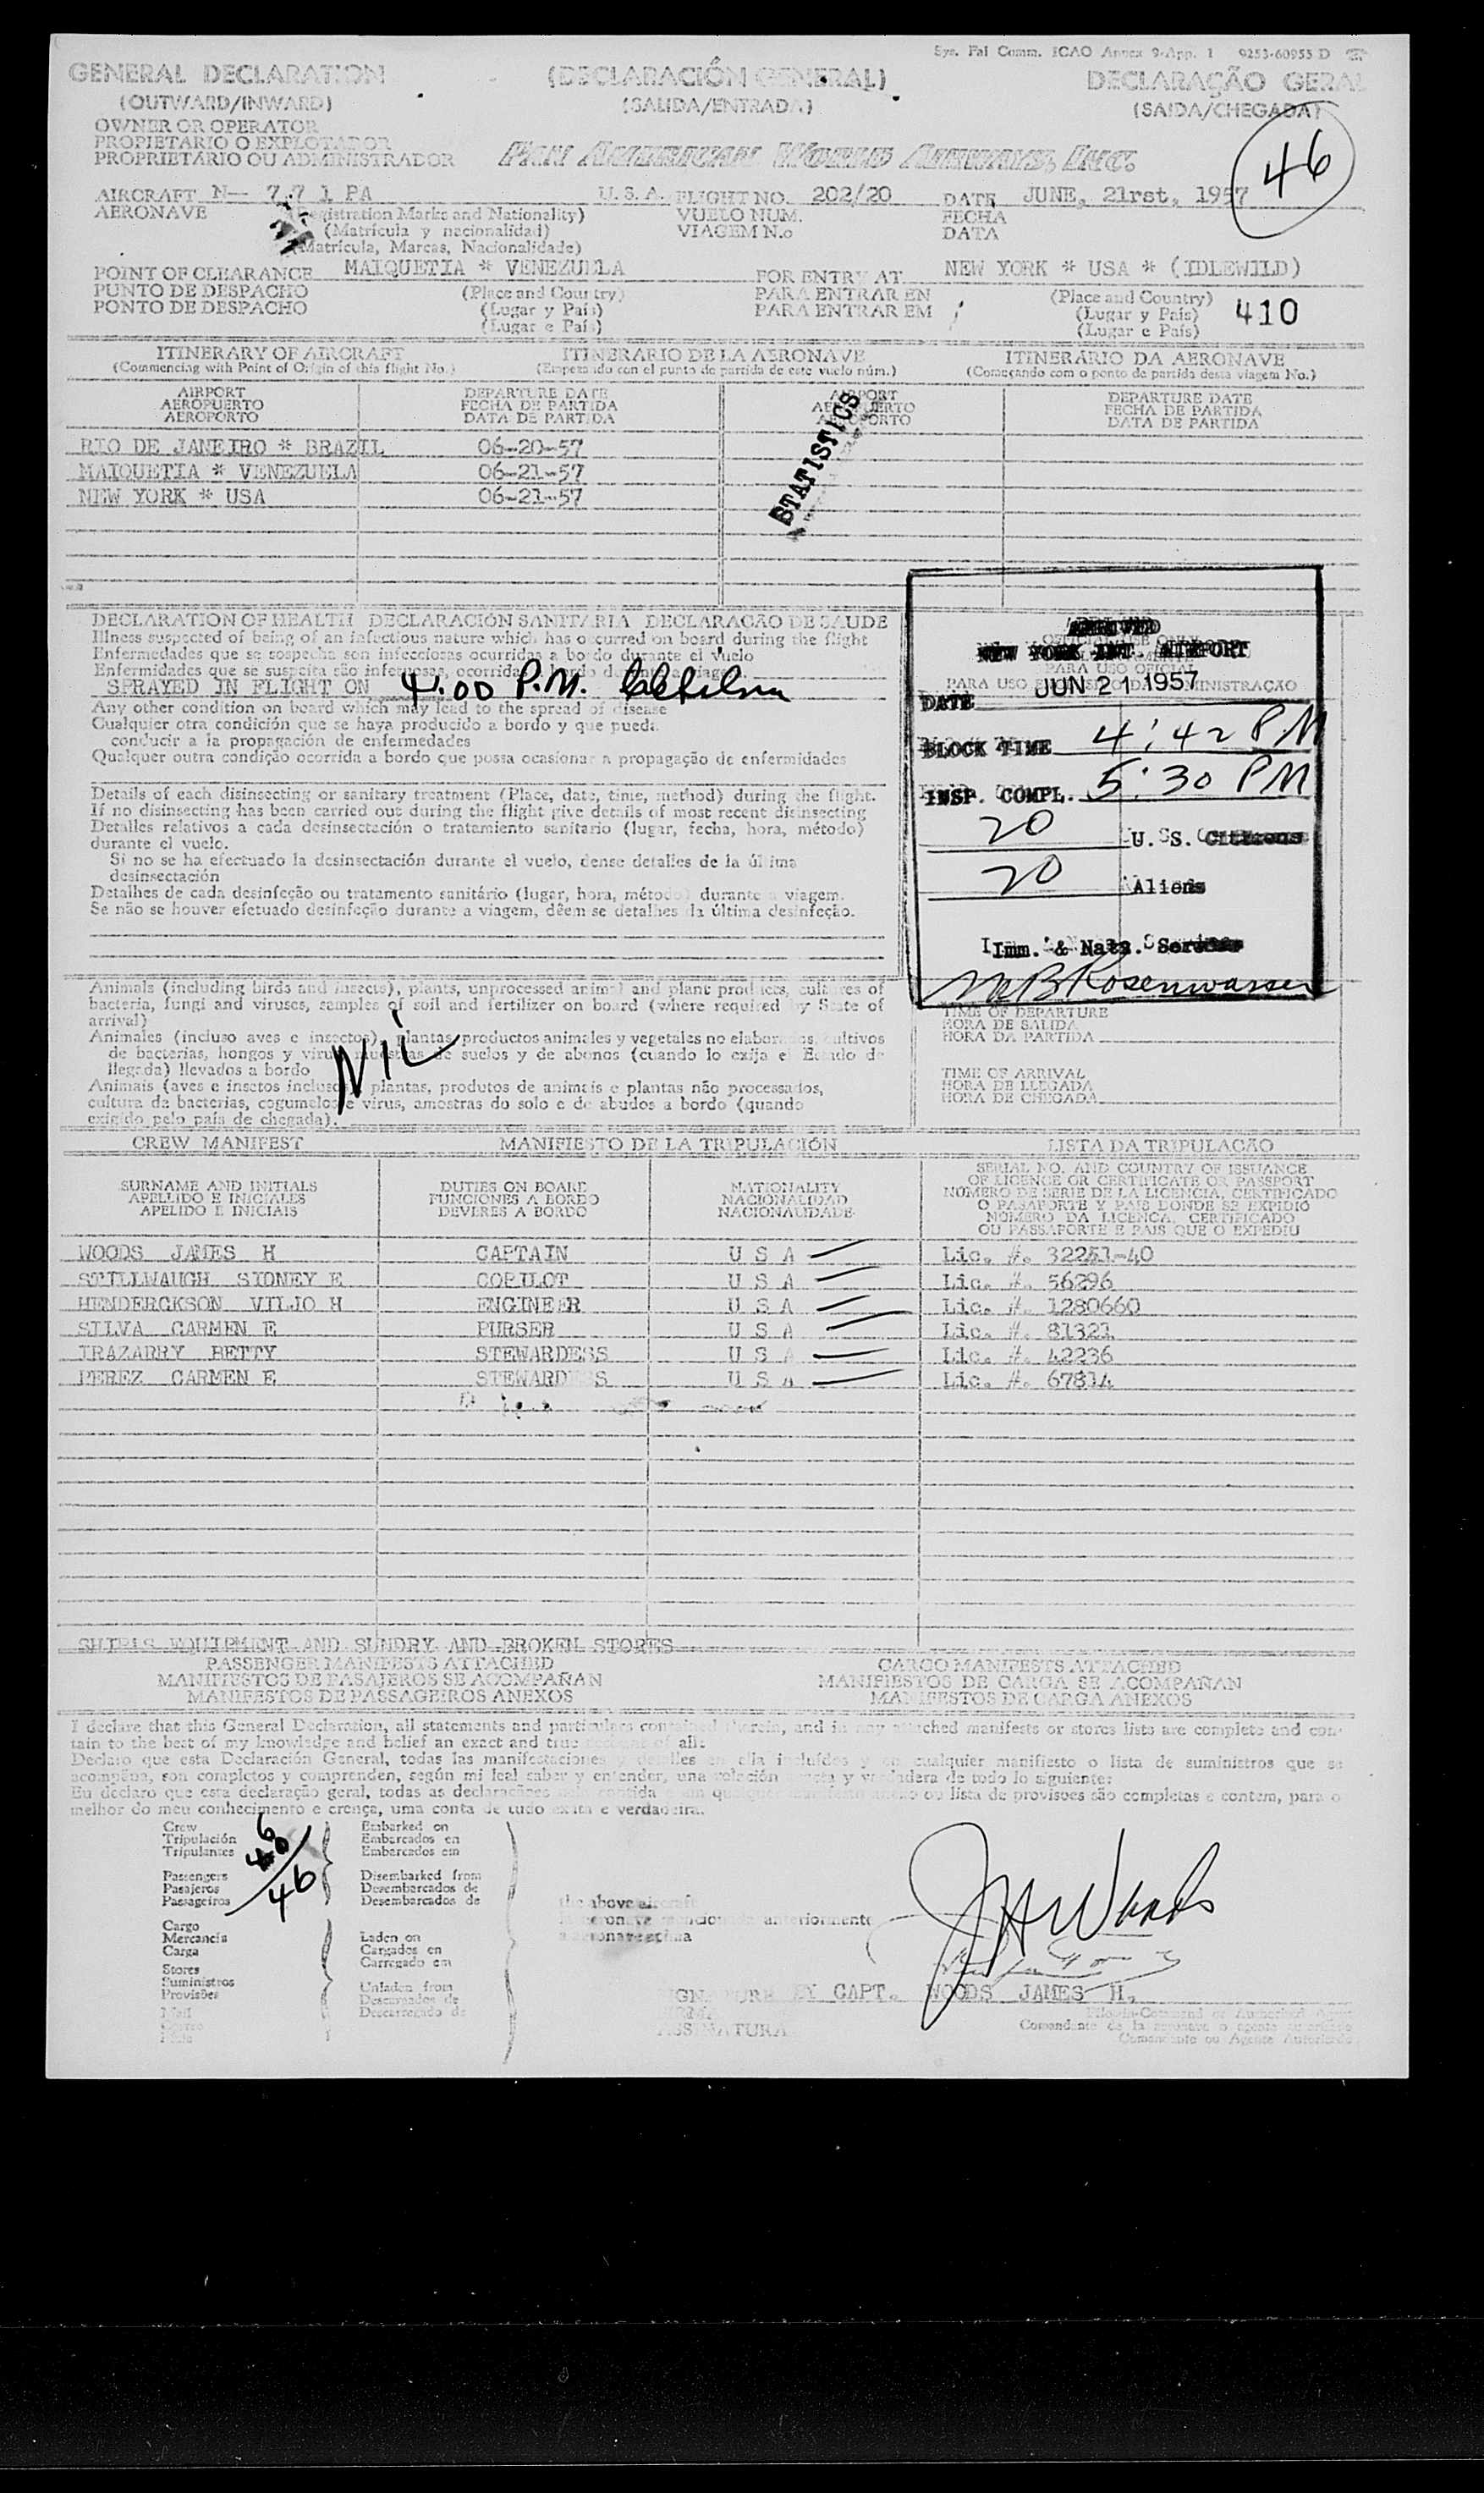 Sys. Fal Comm. ICAO Annex 9-App. 1 9253-60955 D
GENERAL DECLARATION (DECLARACIÓN GENERAL) DECLARAÇÃO GERAL
(OUTWARD/INWARD) (SALIDA/ENTRADA) (SAIDA/CHEGADA)
46
OWNER OR OPERATOR
PROPIETARIO O EXPLOTADOR
PROPRIETÁRIO OU ADMINISTRADOR PAN AMERICAN WORLD AIRWAYS, INC.
AIRCRAFT N- 771 PA U.S.A. FLIGHT NO. 202/20 DATE JUNE, 21rst, 1957
AERONAVE (Registration Marks and Nationality) VUELO NUM. FECHA
(Matrícula y nacionalidad) VIAGEM N.o DATA
(Matrícula, Marcas, Nacionalidade)
POINT OF CLEARANCE MAIQUETIA * VENEZUELA FOR ENTRY AT NEW YORK * USA * (IDLEWILD)
PUNTO DE DESPACHO (Place and Country) PARA ENTRAR EN (Place and Country)
PONTO DE DESPACHO (Lugar y País) PARA ENTRAR EM (Lugar y País) 410
(Lugar e País) (Lugar e País)
ITINERARY OF AIRCRAFT ITINERARIO DE LA AERONAVE ITINERÁRIO DA AERONAVE
(Commencing with Point of Origin of this flight No.) (Empezando con el punto de partida de este vuelo núm.) (Começando com o ponto de partida desta viagem No.)
AIRPORT DEPARTURE DATE AIRPORT DEPARTURE DATE
AEROPUERTO FECHA DE PARTIDA AEROPUERTO FECHA DE PARTIDA
AEROPORTO DATA DE PARTIDA AEROPORTO DATA DE PARTIDA
STATISTICS
RIO DE JANEIRO * BRAZIL 06-20-57
MAIQUETIA * VENEZUELA 06-21-57
NEW YORK * USA 06-21-57
DECLARATION OF HEALTH DECLARACIÓN SANITARIA DECLARAÇÃO DE SAUDE
Illness suspected of being of an infectious nature which has occurred on board during the flight
Enfermedades que se sospecha son infecciosas ocurridas a bordo durante el vuelo
Enfermidades que se suspeita são infecciosas, ocorridas a bordo durante a viagem.
SPRAYED IN FLIGHT ON 4:00 P.M.
Any other condition on board which may lead to the spread of disease
Cualquier otra condición que se haya producido a bordo y que pueda
conducir a la propagación de enfermedades
Qualquer outra condição ocorrida a bordo que possa ocasionar a propagação de enfermidades
Details of each disinsecting or sanitary treatment (Place, date, time, method) during the flight.
If no disinsecting has been carried out during the flight give details of most recent disinsecting
Detalles relativos a cada desinsectación o tratamiento sanitario (lugar, fecha, hora, método)
durante el vuelo.
Si no se ha efectuado la desinsectación durante el vuelo, dense detalles de la última
desinsectación
Detalhes de cada desinfeção ou tratamento sanitário (lugar, hora, método) durante a viagem.
Se não se houver efetuado desinfeção durante a viagem, dêem-se detalhes da última desinfeção.
ARRIVED
NEW YORK INT. AIRPORT
PARA USO OFICIAL
DATE JUN 21 1957
BLOCK TIME 4:42 PM
INSP. COMPL. 5:30 PM
20 U. S. Citizens
20 Aliens
Imm. & Natz. Service
M B Rosenwasser
Animals (including birds and insects), plants, unprocessed animal and plant products, cultures of
bacteria, fungi and viruses, samples of soil and fertilizer on board (where required by State of
arrival)
Animales (incluso aves e insectos), plantas, productos animales y vegetales no elaborados, cultivos
de bacterias, hongos y virus, muestras de suelos y de abonos (cuando lo exija el Estado de
llegada) llevados a bordo
Animais (aves e insetos inclusos), plantas, produtos de animais e plantas não processados,
cultura de bacterias, cogumelos e virus, amostras do solo e de abudos a bordo (quando
exigido pelo país de chegada).
NIL
TIME OF DEPARTURE
HORA DE SALIDA
HORA DA PARTIDA
TIME OF ARRIVAL
HORA DE LLEGADA
HORA DE CHEGADA
CREW MANIFEST MANIFIESTO DE LA TRIPULACIÓN LISTA DA TRIPULAÇÃO
SURNAME AND INITIALS DUTIES ON BOARD NATIONALITY SERIAL NO. AND COUNTRY OF ISSUANCE
APELLIDO E INICIALES FUNCIONES A BORDO NACIONALIDAD OF LICENCE OR CERTIFICATE OR PASSPORT
APELIDO E INICIAIS DEVERES A BORDO NACIONALIDADE NÚMERO DE SERIE DE LA LICENCIA, CERTIFICADO
O PASAPORTE Y PAIS DONDE SE EXPIDIÓ
NÚMERO DA LICENÇA, CERTIFICADO
OU PASSAPORTE E PAIS QUE O EXPEDIU
WOODS JAMES H CAPTAIN U S A Lic. #. 32251-40
STILLWAUGH SIDNEY E COPILOT U S A Lic. #. 56296
HENDERCKSON VILJO H ENGINEER U S A Lic. #. 1280660
SILVA CARMEN E PURSER U S A Lic. #. 81321
IRAZARRY BETTY STEWARDESS U S A Lic. #. 42236
PEREZ CARMEN E STEWARDESS U S A Lic. #. 67814
SHIPLS EQUIPMENT AND SUNDRY AND BROKEN STORES
PASSENGER MANIFESTS ATTACHED CARGO MANIFESTS ATTACHED
MANIFIESTOS DE PASAJEROS SE ACOMPAÑAN MANIFIESTOS DE CARGA SE ACOMPAÑAN
MANIFESTOS DE PASSAGEIROS ANEXOS MANIFESTOS DE CARGA ANEXOS
I declare that this General Declaration, all statements and particulars contained therein, and in any attached manifests or stores lists are complete and con-
tain to the best of my knowledge and belief an exact and true account of all:
Declaro que esta Declaración General, todas las manifestaciones y detalles en ella incluídos y en cualquier manifiesto o lista de suministros que se
acompaña, son completos y comprenden, según mi leal saber y entender, una relación exacta y verdadera de todo lo siguiente:
Eu declaro que esta declaração geral, todas as declarações nela contida e em qualquer manifesto anexo ou lista de provisoes são completas e contem, para o
melhor do meu conhecimento e crença, uma conta de tudo exata e verdadeira.
Crew 6 Embarked on
Tripulación Embarcados en
Tripulantes 40 Embarcados em
Passengers 46 Disembarked from
Pasajeros Desembarcados de
Passageiros Desembarcados de the above aircraft
Cargo la aeronave mencionada anteriormente
Mercancía Laden on a aeronave acima
Carga Cargados en
Stores Carregado em
Suministros
Provisões Unladen from
Descargados de
Descarregado de
JHWoods
SIGNATURE BY CAPT. WOODS JAMES H.
FIRMA
ASSINATURA
Pilot-in-Command or Authorized Agent
Comandante de la aeronave o agente autorizado
Comandante ou Agente Autorizado